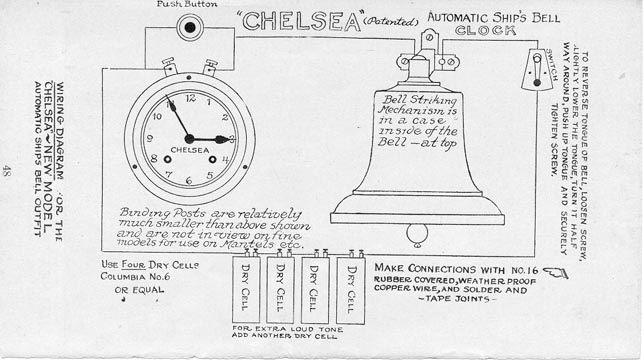 Push Button
"CHELSEA" (Patented) AUTOMATIC SHIP'S BELL
CLOCK
SWITCH
TO REVERSE TONGUE OF BELL, LOOSEN SCREW,
SLIGHTLY LOWER THE TONGUE, TURN IT HALF
WAY AROUND, PUSH UP TONGUE AND SECURELY
TIGHTEN SCREW.
12
1
2
3
4
8
9
10
CHELSEA
Bell Striking
Mechanism is
in a case
inside of the
Bell - at top
WIRING DIAGRAM FOR THE
"CHELSEA" - NEW MODEL
AUTOMATIC SHIP'S BELL OUTFIT
48
Binding Posts are relatively
much smaller than above shown
and are not in view on fine
models for use on Mantels etc.
USE FOUR DRY CELLS
COLUMBIA No.6
OR EQUAL
DRY CELL
DRY CELL
DRY CELL
DRY CELL
FOR EXTRA LOUD TONE
ADD ANOTHER DRY CELL
MAKE CONNECTIONS WITH NO.16
RUBBER COVERED, WEATHER PROOF
COPPER WIRE, AND SOLDER AND
- TAPE JOINTS -